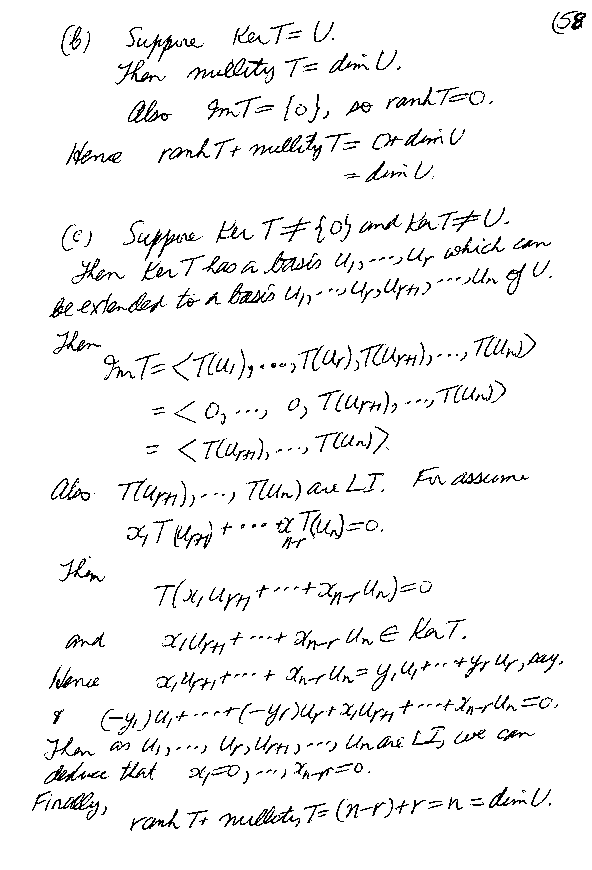 (58
(b) Suppose Ker T = U.
Then nullity T = dim U.
Also Im T = {0}, so rank T = 0.
Hence rank T + nullity T = 0 + dim U
= dim U.
(c) Suppose Ker T ≠ {0} and Ker T ≠ U.
Then Ker T has a basis u₁, ..., uᵣ which can
be extended to a basis u₁, ..., uᵣ, uᵣ₊₁, ..., uₙ of U.
Then
Im T = <T(u₁), ..., T(uᵣ), T(uᵣ₊₁), ..., T(uₙ)>
= <0, ..., 0, T(uᵣ₊₁), ..., T(uₙ)>
= <T(uᵣ₊₁), ..., T(uₙ)>.
Also T(uᵣ₊₁), ..., T(uₙ) are LI. For assume
x₁T(uᵣ₊₁) + ... + xₙ₋ᵣT(uₙ) = 0.
Then
T(x₁uᵣ₊₁ + ... + xₙ₋ᵣuₙ) = 0
and x₁uᵣ₊₁ + ... + xₙ₋ᵣuₙ ∈ Ker T.
Hence x₁uᵣ₊₁ + ... + xₙ₋ᵣuₙ = y₁u₁ + ... + yᵣuᵣ, say,
& (-y₁)u₁ + ... + (-yᵣ)uᵣ + x₁uᵣ₊₁ + ... + xₙ₋ᵣuₙ = 0.
Then as u₁, ..., uᵣ, uᵣ₊₁, ..., uₙ are LI, we can
deduce that x₁ = 0, ..., xₙ₋ᵣ = 0.
Finally,
rank T + nullity T = (n-r) + r = n = dim U.